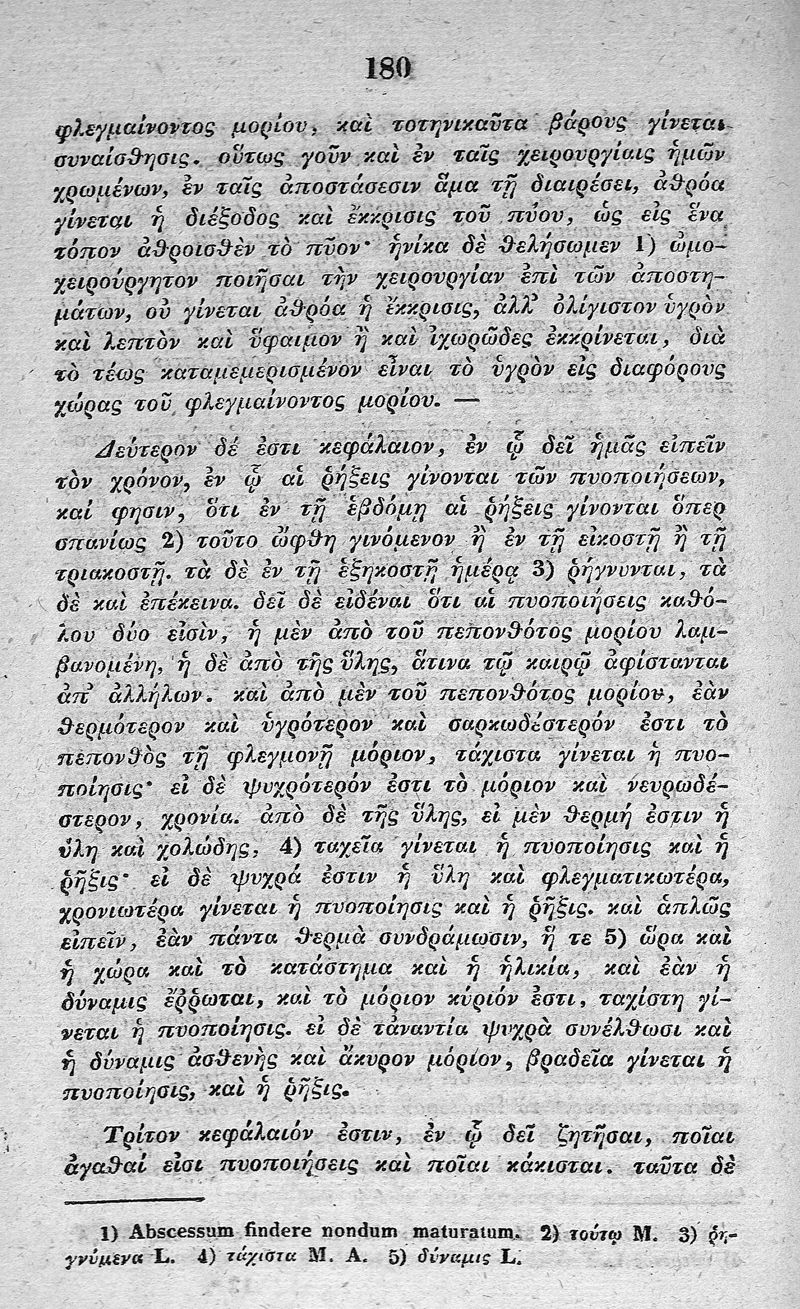 180
φλεγμαίνοντος μορίου, καὶ τοτηνικαῦτα βάρους γίνεται
συναίσθησις. οὕτως γοῦν καὶ ἐν ταῖς χειρουργίαις ἡμῶν
χρωμένων, ἐν ταῖς ἀποστάσεσιν ἅμα τῇ διαιρέσει, ἀθρόα
γίνεται ἡ διέξοδος καὶ ἔκκρισις τοῦ πύου, ὡς εἰς ἕνα
τόπον ἀθροισθὲν τὸ πῦον· ἡνίκα δὲ θελήσωμεν 1) ὠμο-
χειρούργητον ποιῆσαι τὴν χειρουργίαν ἐπὶ τῶν ἀποστη-
μάτων, οὐ γίνεται ἀθρόα ἡ ἔκκρισις, ἀλλ' ὀλίγιστον ὑγρὸν
καὶ λεπτὸν καὶ ὕφαιμον ἢ καὶ ἰχωρῶδες ἐκκρίνεται, διὰ
τὸ τέως καταμεμερισμένον εἶναι τὸ ὑγρὸν εἰς διαφόρους
χώρας τοῦ φλεγμαίνοντος μορίου. —
Δεύτερον δέ ἐστι κεφάλαιον, ἐν ᾧ δεῖ ἡμᾶς εἰπεῖν
τὸν χρόνον, ἐν ᾧ αἱ ῥήξεις γίνονται τῶν πυοποιήσεων,
καί φησιν, ὅτι ἐν τῇ ἑβδόμῃ αἱ ῥήξεις γίνονται ὅπερ
σπανίως 2) τοῦτο ὤφθη γινόμενον ἢ ἐν τῇ εἰκοστῇ ἢ τῇ
τριακοστῇ. τὰ δὲ ἐν τῇ ἑξηκοστῇ ἡμέρᾳ 3) ῥήγνυνται, τὰ
δὲ καὶ ἐπέκεινα. δεῖ δὲ εἰδέναι ὅτι αἱ πυοποιήσεις καθό-
λου δύο εἰσὶν, ἡ μὲν ἀπὸ τοῦ πεπονθότος μορίου λαμ-
βανομένη, ἡ δὲ ἀπὸ τῆς ὕλης, ἅτινα τῷ καιρῷ ἀφίστανται
ἀπ' ἀλλήλων. καὶ ἀπὸ μὲν τοῦ πεπονθότος μορίου, ἐὰν
θερμότερον καὶ ὑγρότερον καὶ σαρκωδέστερόν ἐστι τὸ
πεπονθὸς τῇ φλεγμονῇ μόριον, τάχιστα γίνεται ἡ πυο-
ποίησις· εἰ δὲ ψυχρότερόν ἐστι τὸ μόριον καὶ νευρωδέ-
στερον, χρονία. ἀπὸ δὲ τῆς ὕλης, εἰ μὲν θερμή ἐστιν ἡ
ὕλη καὶ χολώδης, 4) ταχεῖα γίνεται ἡ πυοποίησις καὶ ἡ
ῥῆξις· εἰ δὲ ψυχρά ἐστιν ἡ ὕλη καὶ φλεγματικωτέρα,
χρονιωτέρα γίνεται ἡ πυοποίησις καὶ ἡ ῥῆξις. καὶ ἁπλῶς
εἰπεῖν, ἐὰν πάντα θερμὰ συνδράμωσιν, ἥ τε 5) ὥρα καὶ
ἡ χώρα καὶ τὸ κατάστημα καὶ ἡ ἡλικία, καὶ ἐὰν ἡ
δύναμις ἔῤῥωται, καὶ τὸ μόριον κύριόν ἐστι, ταχίστη γί-
νεται ἡ πυοποίησις. εἰ δὲ τἀναντία ψυχρὰ συνέλθωσι καὶ
ἡ δύναμις ἀσθενὴς καὶ ἄκυρον μόριον, βραδεῖα γίνεται ἡ
πυοποίησις, καὶ ἡ ῥῆξις.
Τρίτον κεφάλαιόν ἐστιν, ἐν ᾧ δεῖ ζητῆσαι, ποῖαι
ἀγαθαί εἰσι πυοποιήσεις καὶ ποῖαι κάκισται. ταῦτα δὲ
1) Abscessum findere nondum maturatum. 2) τούτῳ M. 3) ῥη-
γνύμενα L. 4) τάχιστα M. A. 5) δύναμις L.